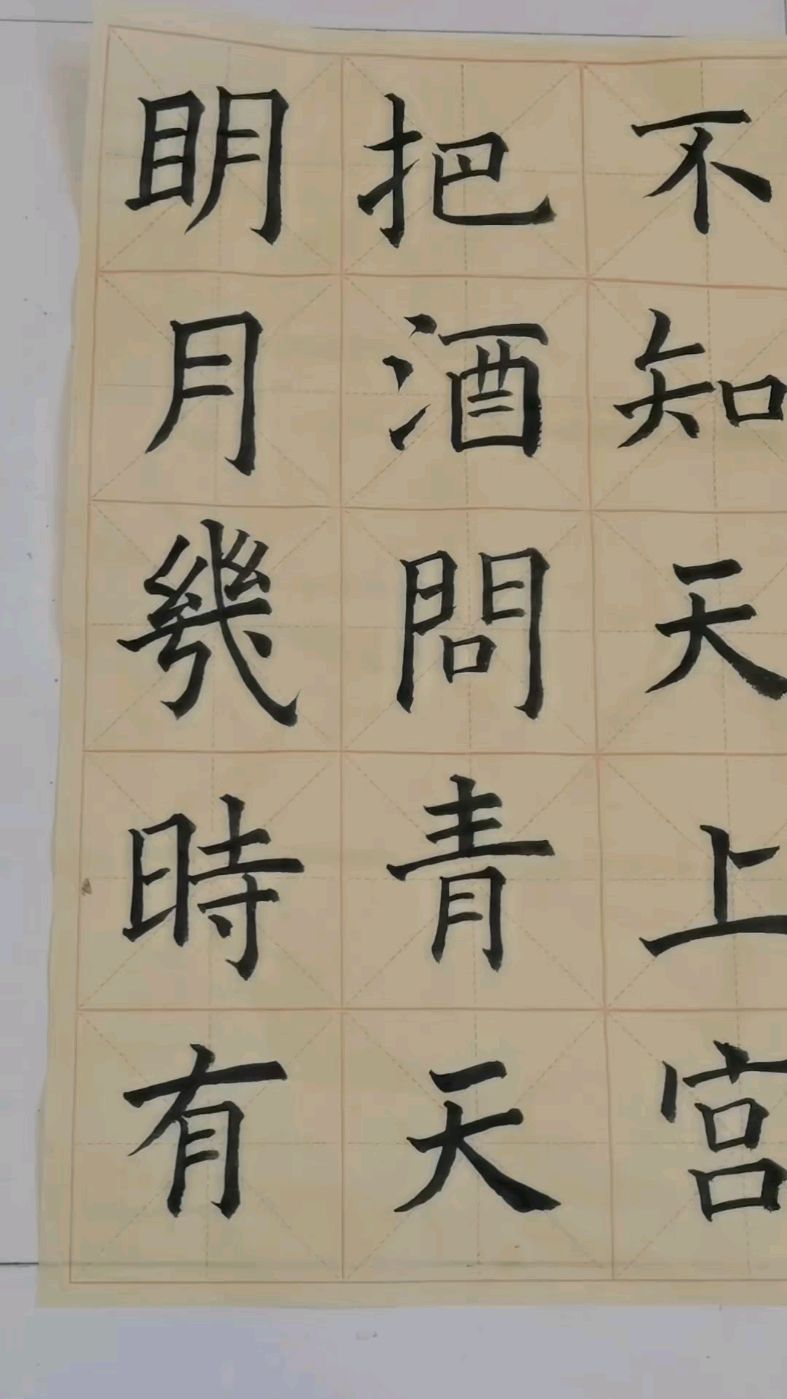 明月幾時有
把酒問青天
不知天上宫